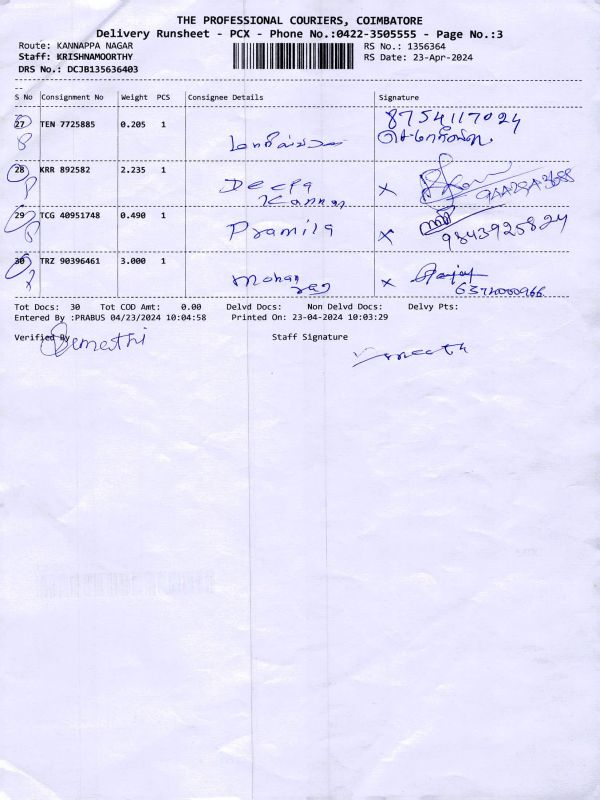 THE PROFESSIONAL COURIERS, COIMBATORE
Delivery Runsheet - PCX - Phone No.:0422-3505555 - Page No.:3
Route: KANNAPPA NAGAR RS No.: 1356364
Staff: KRISHNAMOORTHY RS Date: 23-Apr-2024
DRS No.: DCJB135636403
S No Consignment No Weight PCS Consignee Details Signature
27 TEN 7725885 0.205 1 8754117024
28 KRR 892582 2.235 1 Deepa Kannan
29 TCG 40951748 0.490 1 Pramila 9843925824
30 TRZ 90396461 3.000 1 Mohan raj
Tot Docs: 30 Tot COD Amt: 0.00 Delvd Docs: Non Delvd Docs: Delvy Pts:
Entered By :PRABUS 04/23/2024 10:04:58 Printed On: 23-04-2024 10:03:29
Verified By Staff Signature